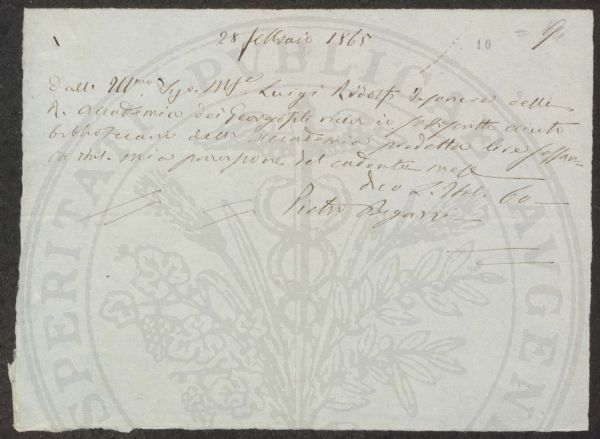 28 febbraio 1865
10
Dall. Illmo Sigr. Mse. Luigi Ridolfi Economo della
R. Accademia dei Georgofili ricevo io sottoscritto aiuto
bibliotecario della Accademia predetta lire sessan-
ta mia provisione del cadente mese
dico L. Ital. 60
Pietro Bigazzi
PROSPERITATEM PUBLICAM AUGENDAM